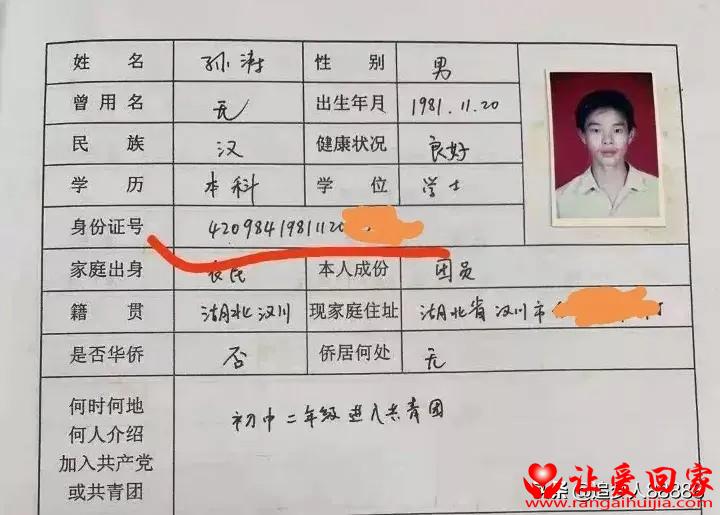 姓 名 孙涛 性 别 男
曾用名 无 出生年月 1981.11.20
民 族 汉 健康状况 良好
学 历 本科 学 位 学士
身份证号 42098419811120
家庭出身 农民 本人成份 团员
籍 贯 湖北汉川 现家庭住址 湖北省汉川市
是否华侨 否 侨居何处 无
何时何地
何人介绍
加入共产党
或共青团
初中二年级进入共青团
让爱回家
www.rangaihuijia.com